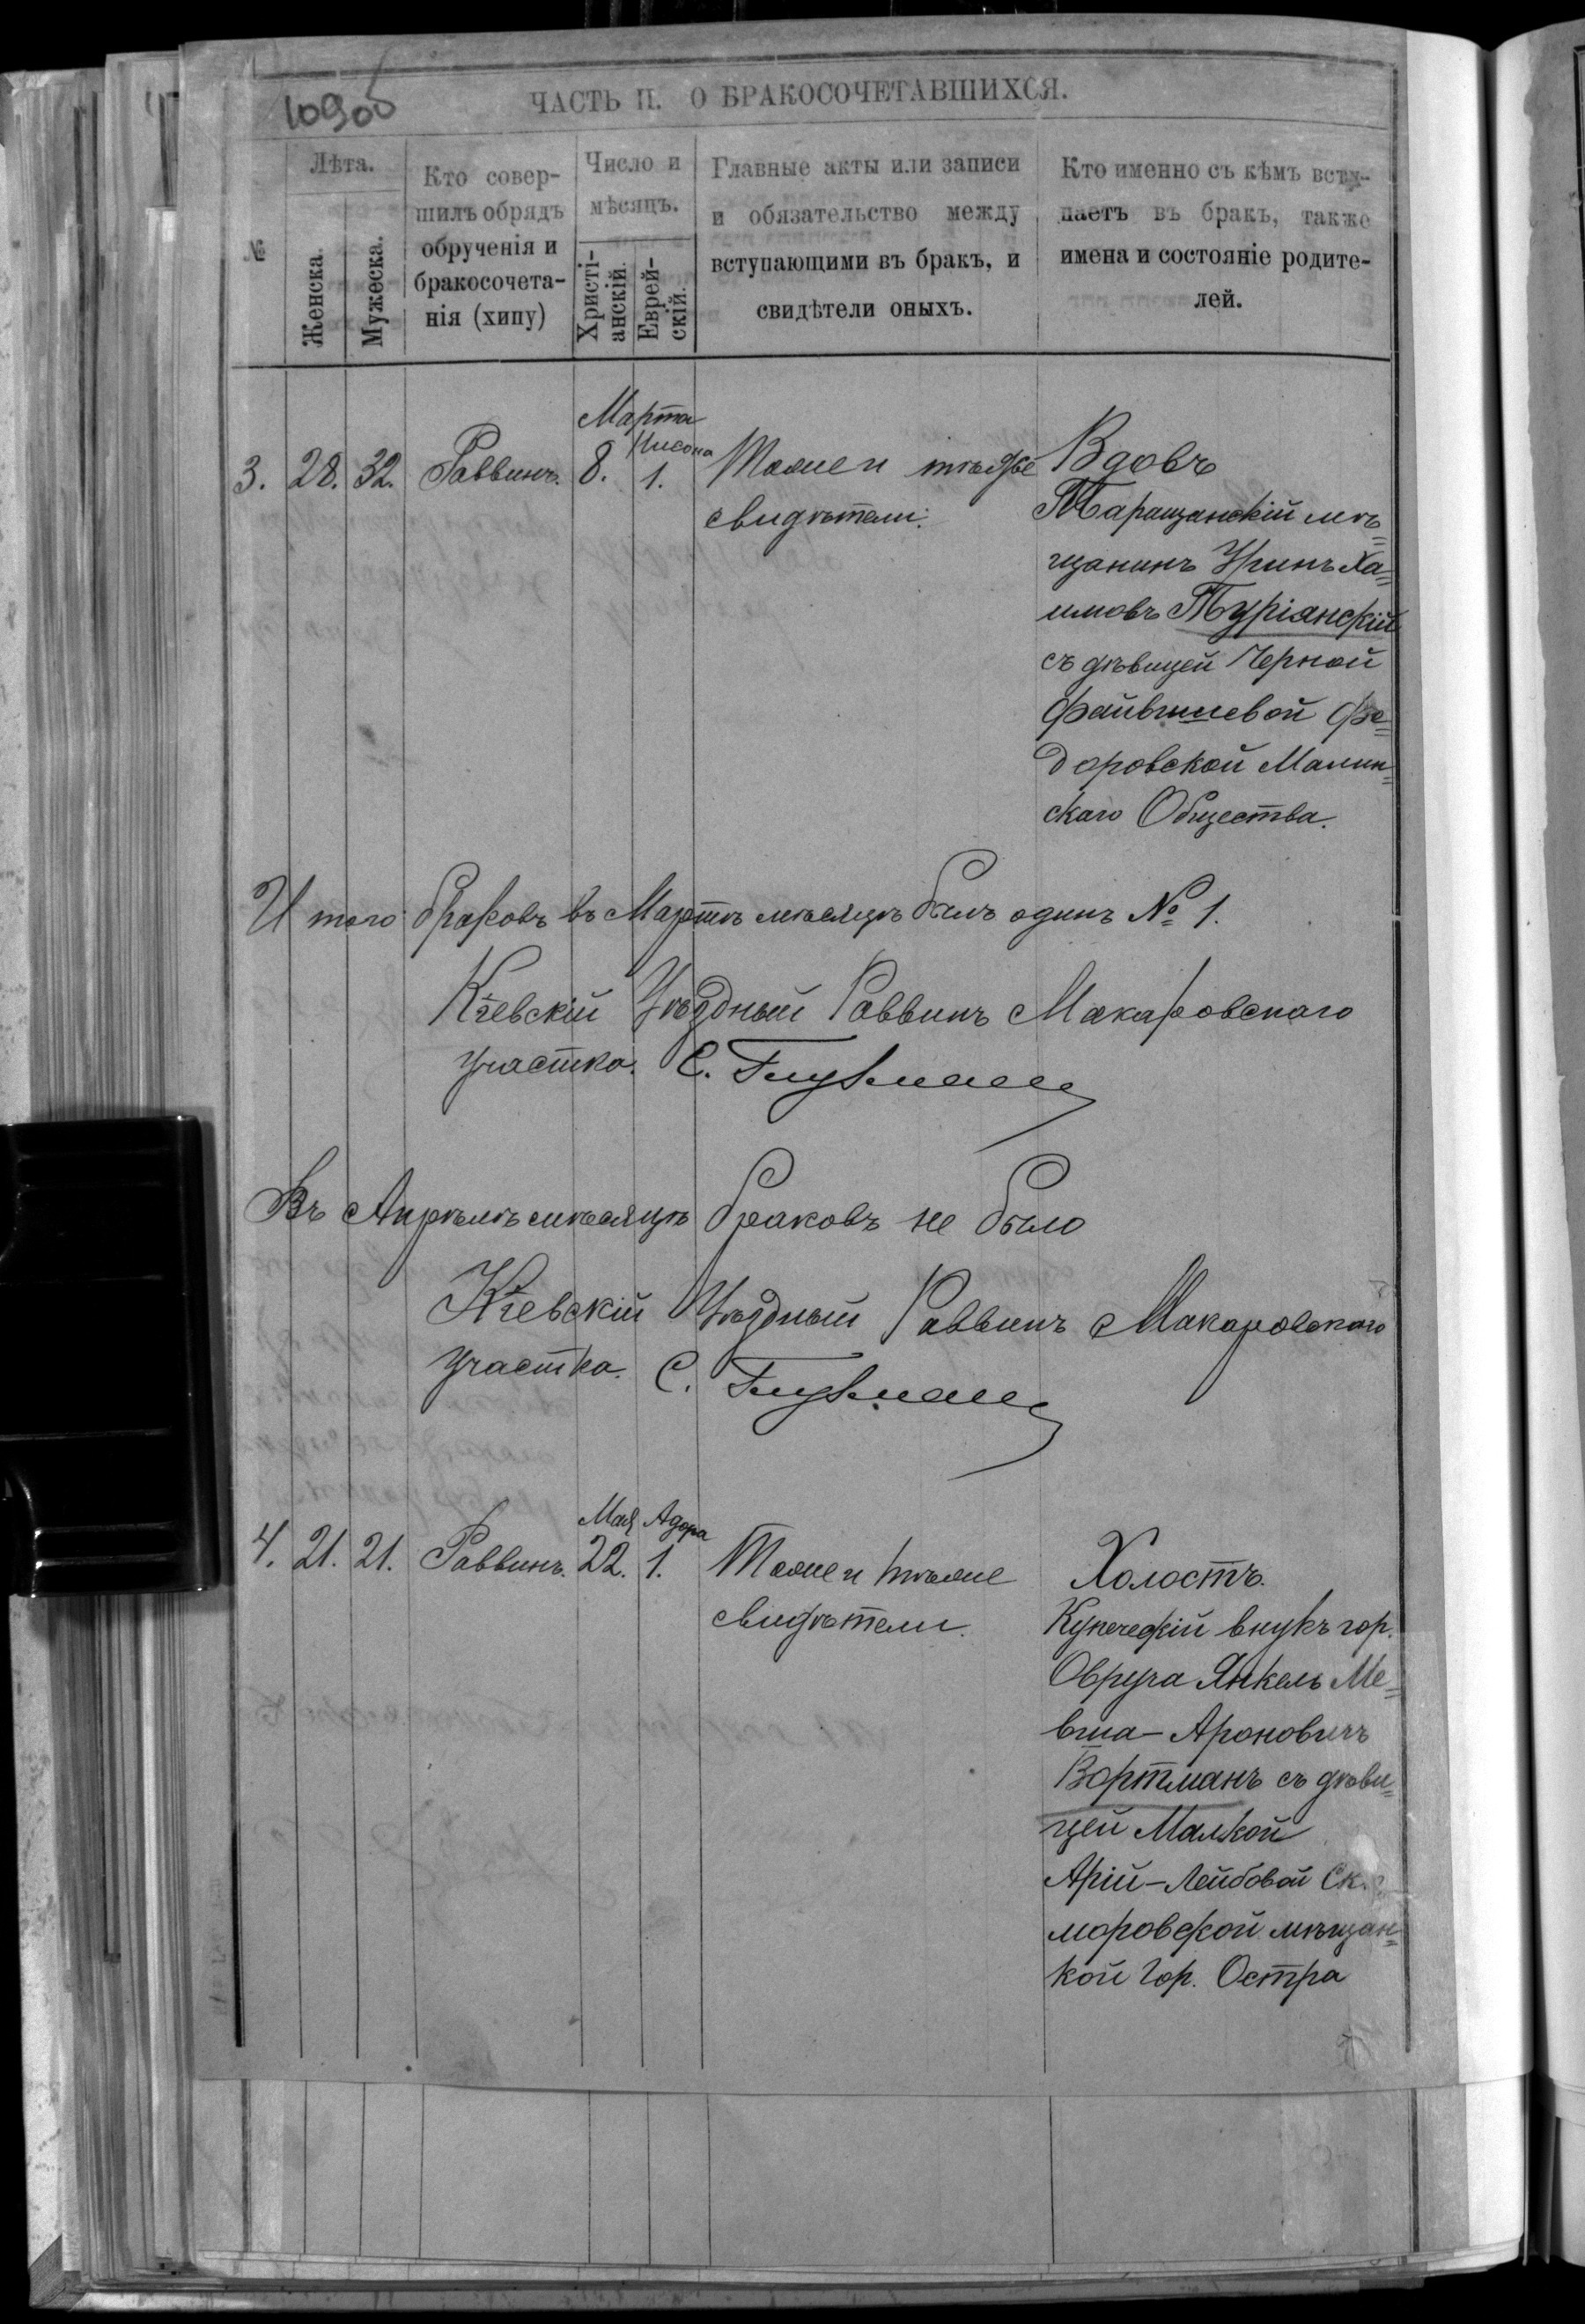 10905
ЧАСТЬ II. О БРАКОСОЧЕТАВШИХСЯ.
№
Лѣта.
Женска.
Мужеска.
Кто совер-
шилъ обрядъ
обрученія и
бракосочета-
нія (хипу)
Число и
мѣсяцъ.
Христі-
анскій.
Еврей-
скій.
Главные акты или записи
и обязательство между
вступающими въ бракъ, и
свидѣтели оныхъ.
Кто именно съ кѣмъ всту-
паетъ въ бракъ, также
имена и состояніе родите-
лей.
Марта
Нисона
3. 28. 32. Раввинъ. 8. 1. Тоже и тѣже
свидѣтели.
Вдовъ
Таращанскій мѣ=
щанинъ Уринъ Ха=
имовъ Туріанскій
съ дѣвицей Черной
Файвишевой Фе=
доровской Малин=
скаго Общества.
И того браковъ въ Мартѣ мѣсяцѣ былъ одинъ № 1.
Кіевскій Уѣздный Раввинъ Макаровскаго
участка. С. Глузманъ
Въ Апрѣлѣ мѣсяцѣ браковъ не было
Кіевскій Уѣздный Раввинъ Макаровскаго
участка. С. Глузманъ
Мая Адора
4. 21. 21. Раввинъ. 22. 1. Тоже и тѣже
свидѣтели.
Холостъ.
Купеческій внукъ гор.
Овруча Янкель Ме=
вша-Ароновичъ
Вортманъ съ дѣви=
цей Малкой
Арій-Лейбовой Ск
моровской мѣщан=
кой гор. Остра